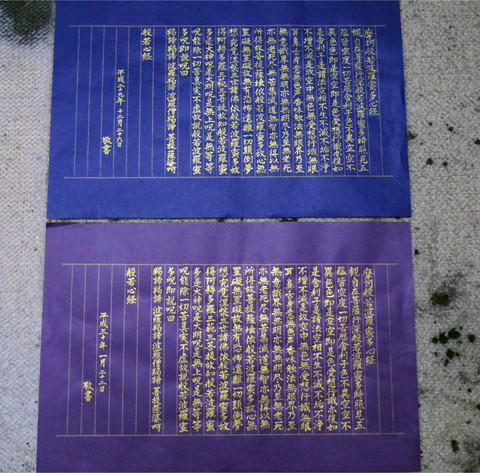 摩訶般若波羅蜜多心経
観自在菩薩行深般若波羅蜜多時照見五
蘊皆空度一切苦厄舎利子色不異空空不
異色色即是空空即是色受想行識亦復如
是舎利子是諸法空相不生不滅不垢不浄
不増不減是故空中無色無受想行識無眼
耳鼻舌身意無色声香味触法無眼界乃至
無意識界無無明亦無無明尽乃至無老死
亦無老死尽無苦集滅道無智亦無得以無
所得故菩提薩埵依般若波羅蜜多故心無
罣礙無罣礙故無有恐怖遠離一切顛倒夢
想究竟涅槃三世諸佛依般若波羅蜜多故
得阿耨多羅三藐三菩提故知般若波羅蜜
多是大神呪是大明呪是無上呪是無等等
呪能除一切苦真実不虚故説般若波羅蜜
多呪即説呪曰
羯諦羯諦 波羅羯諦 波羅僧羯諦 菩提薩婆訶
般若心経
平成二十九年 十二月二十八日
敬書
摩訶般若波羅蜜多心経
観自在菩薩行深般若波羅蜜多時照見五
蘊皆空度一切苦厄舎利子色不異空空不
異色色即是空空即是色受想行識亦復如
是舎利子是諸法空相不生不滅不垢不浄
不増不減是故空中無色無受想行識無眼
耳鼻舌身意無色声香味触法無眼界乃至
無意識界無無明亦無無明尽乃至無老死
亦無老死尽無苦集滅道無智亦無得以無
所得故菩提薩埵依般若波羅蜜多故心無
罣礙無罣礙故無有恐怖遠離一切顛倒夢
想究竟涅槃三世諸佛依般若波羅蜜多故
得阿耨多羅三藐三菩提故知般若波羅蜜
多是大神呪是大明呪是無上呪是無等等
呪能除一切苦真実不虚故説般若波羅蜜
多呪即説呪曰
羯諦羯諦 波羅羯諦 波羅僧羯諦 菩提薩婆訶
般若心経
平成三十年 一月二十二日
敬書